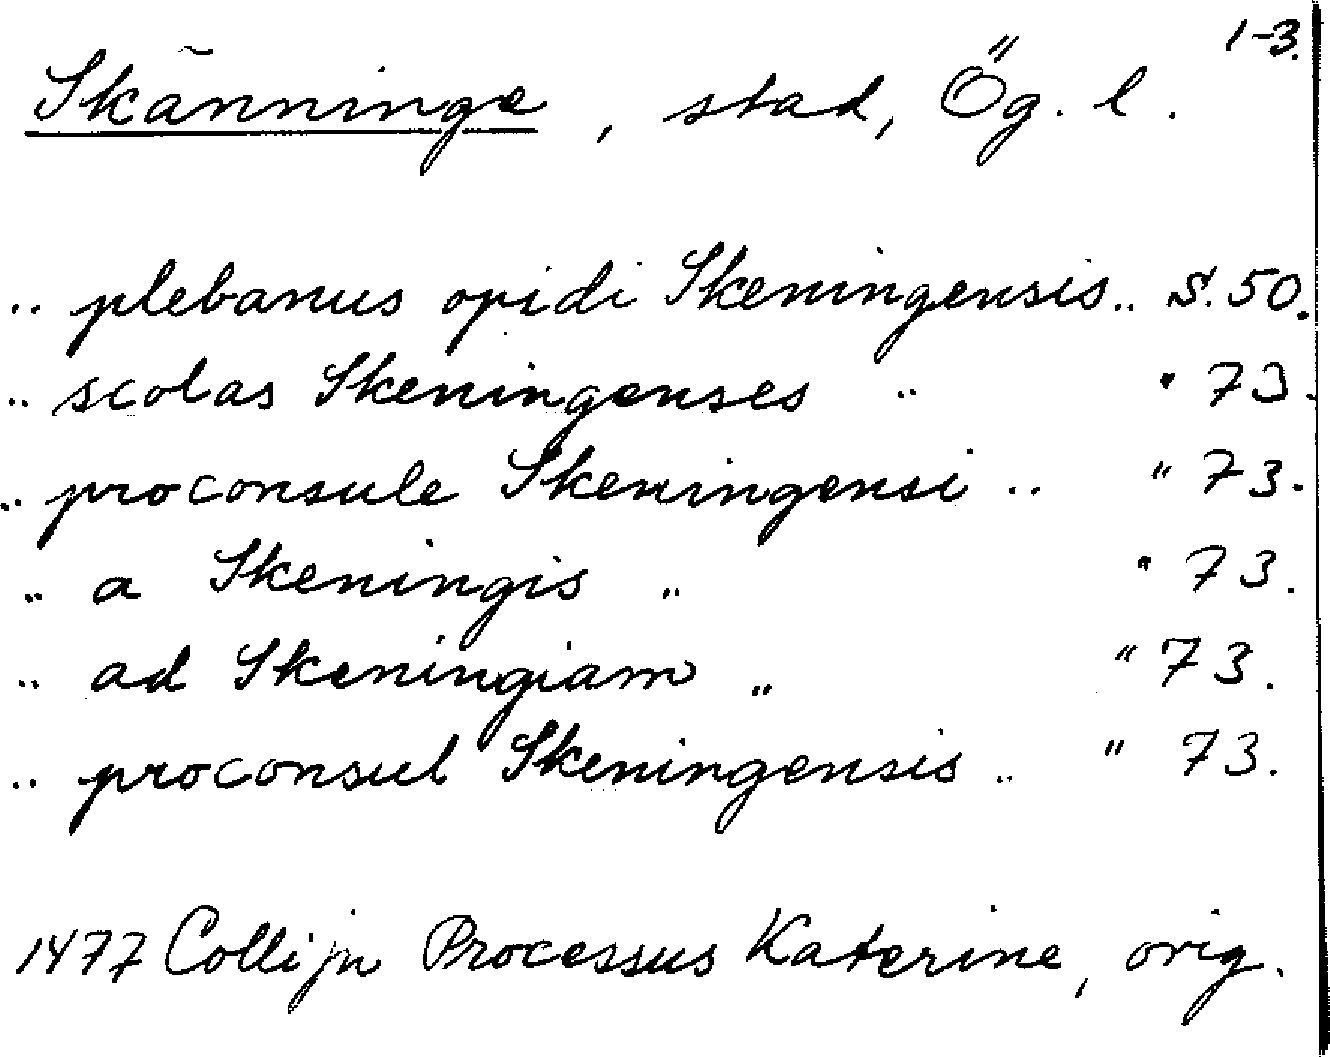 1-3.
Skänninge, stad, Ög. l.
.. plebanus opidi Skeningensis.. S. 50.
.. scolas Skeningenses .. " 73.
.. proconsule Skeningensi .. " 73.
.. a Skeningis .. " 73.
.. ad Skeningiam .. " 73.
.. proconsul Skeningensis .. " 73.
1477 Collijn Processus Katerine, orig.